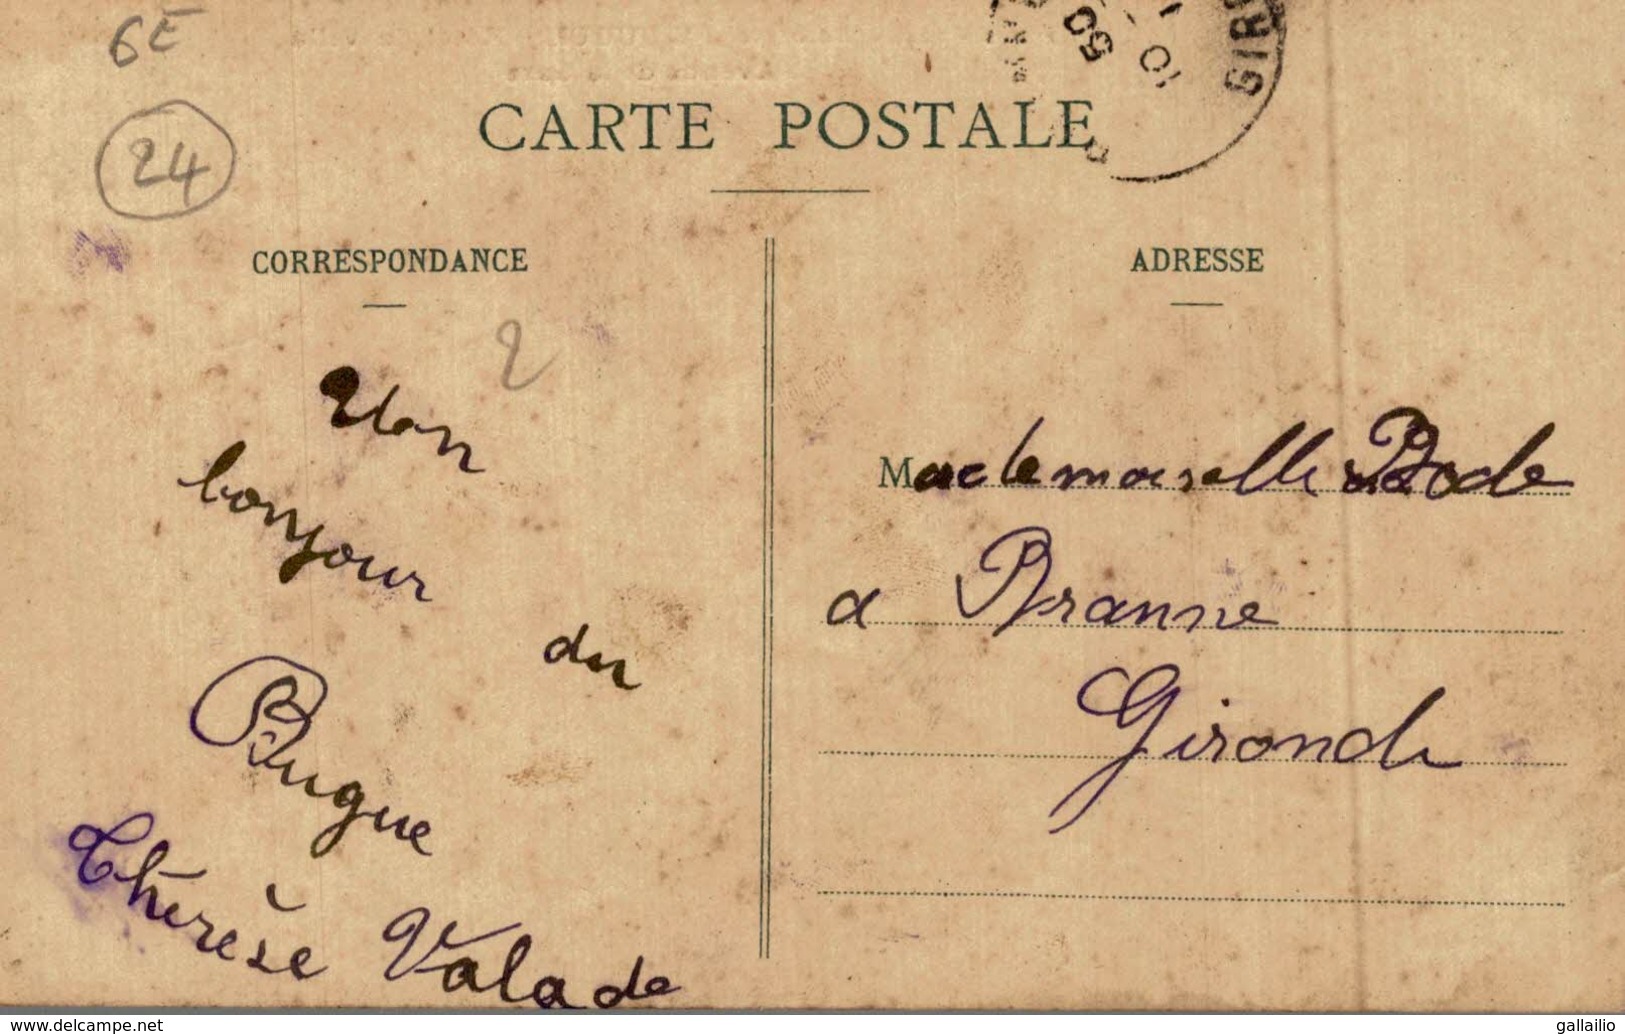 6E
24
CARTE POSTALE
GIR
10
CORRESPONDANCE
ADRESSE
2
Un
bonjour
du
Bugue
Thérèse Valade
Mademoiselle Bode
a Branne
Gironde
www.delcampe.net
gallailio